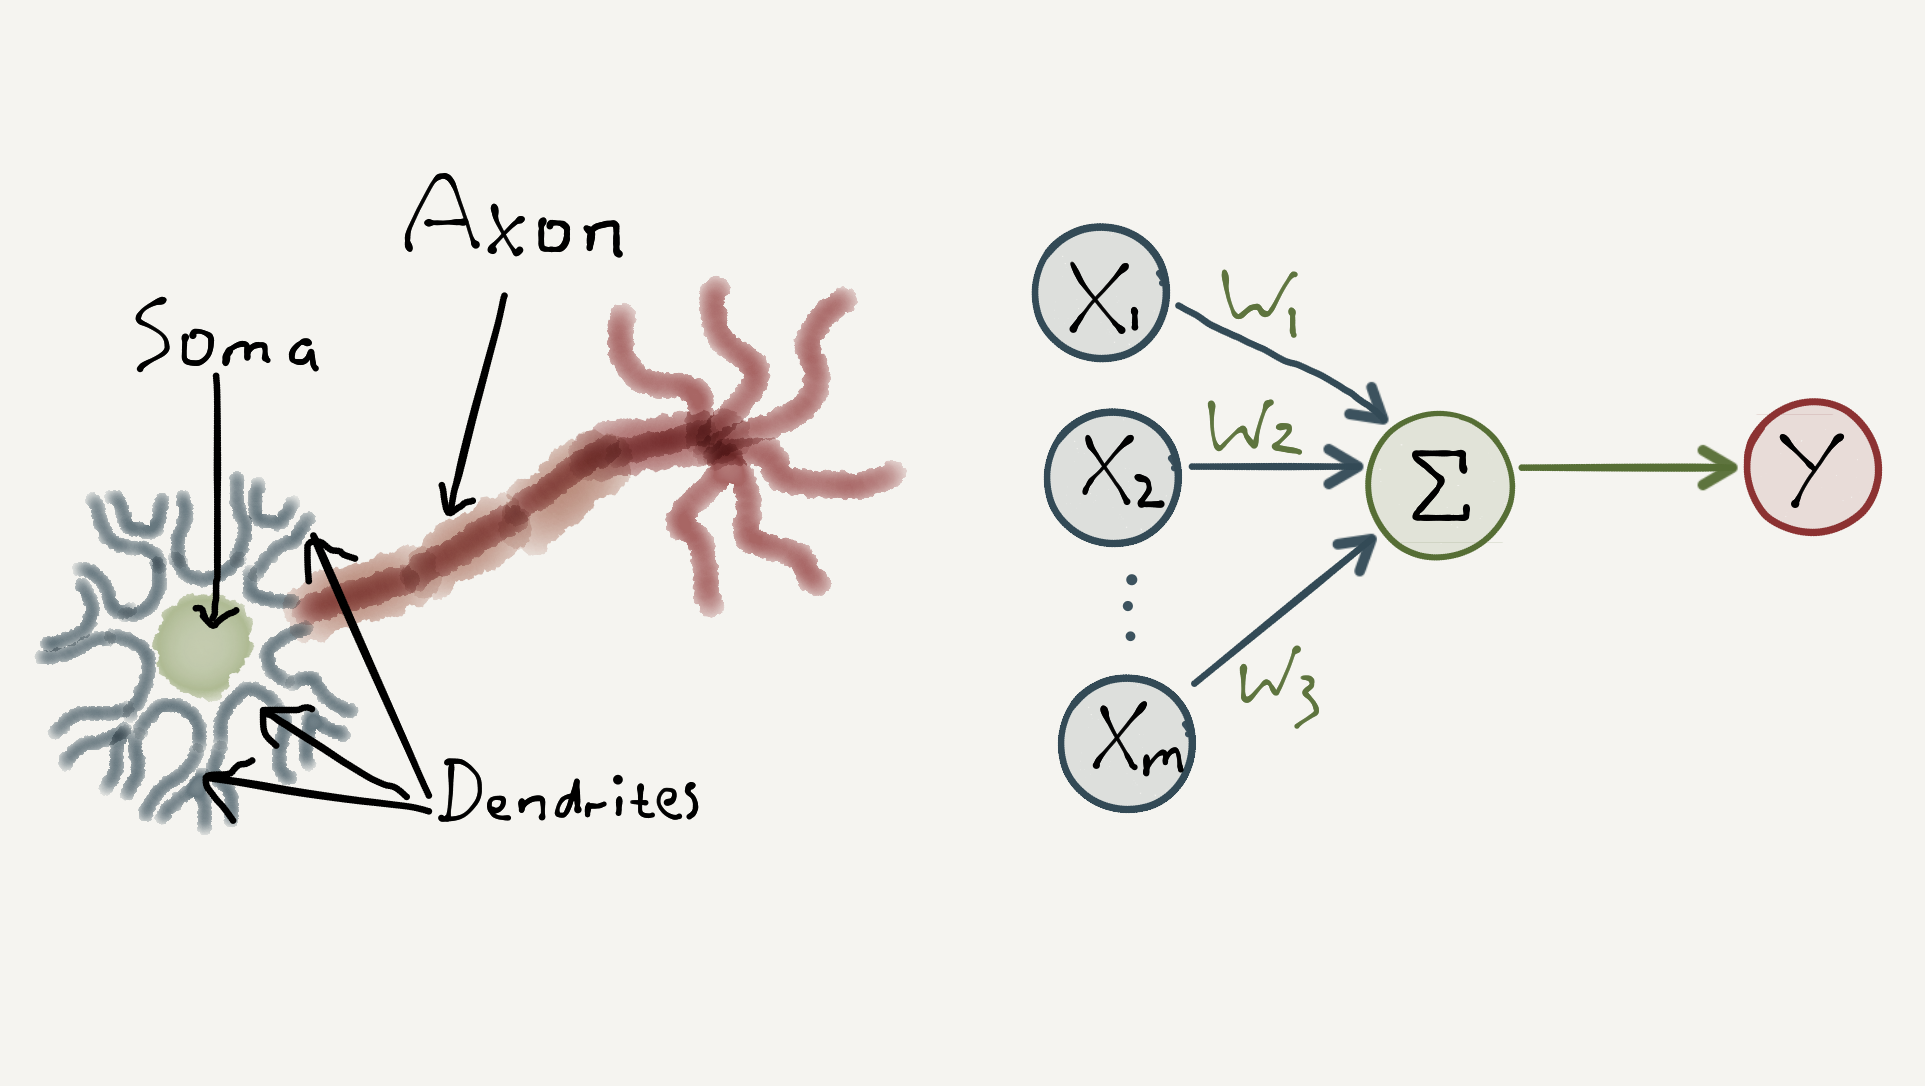 Axon
Soma
Dendrites
X1
W1
X2
W2
Σ
Y
Xm
W3